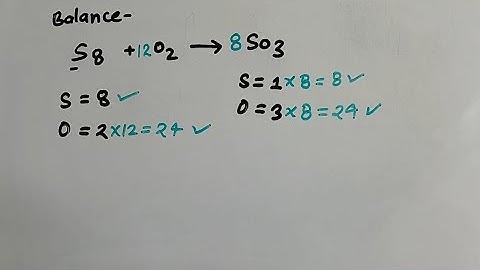 Balance-
S8 +12O2 → 8SO3
S = 8 ✓
O = 2×12=24 ✓
S = 1×8=8✓
O = 3×8=24✓